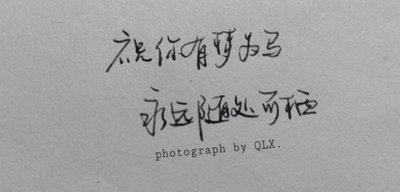 祝你有梦为马
永远随处可栖
photograph by QLX.